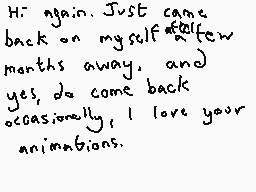 Hi again. Just came
back on my self after a few
months away, and
yes, do come back
occasionally, I love your
animations.